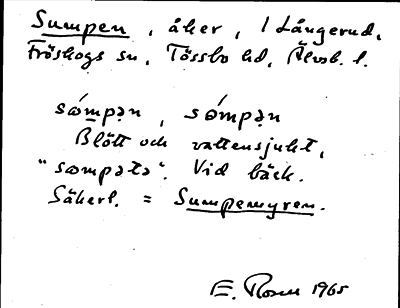 Sumpen, åker, i Långerud,
Fröskogs sn, Tössbo hd, Älvsb. l.
sómpən, sómpən
Blött och vattensjukt,
"sompətə". Vid bäck.
Säkerl. = Sumpemyren.
E. Rosell 1965